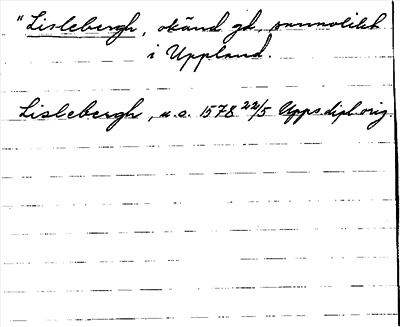 "Lislebergh, okänd gd. sannolikt
i Uppland.
Lislebergh, u.a. 1578 22/5 Upps dipl. orig.